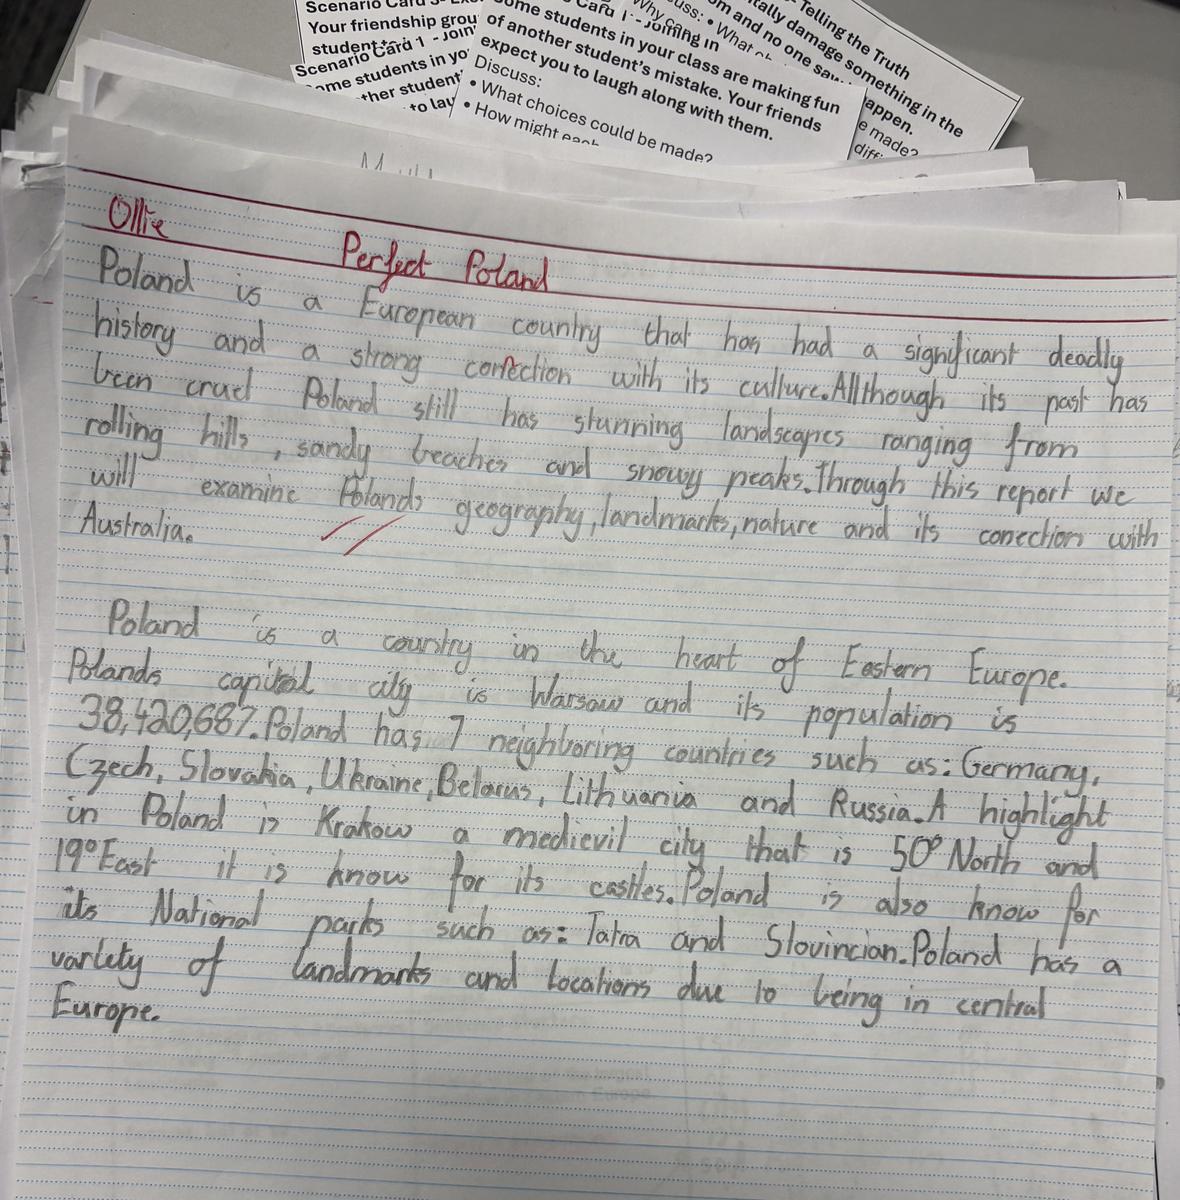 Scenario Card
Your friendship grou
student
Scenario Card 1 - Join
ome students in yo
ther student
to lay
Card 1 - Joining in
ome students in your class are making fun
of another student's mistake. Your friends
expect you to laugh along with them.
Discuss:
• What choices could be made?
• How might each
Why can
uss: • What
om and no one saw
Telling the Truth
tally damage something in the
appen.
e made?
diff
Ollie
Perfect Poland
Poland is a European country that has had a significant deadly
history and a strong conection with its culture. Allthough its past has
been cruel Poland still has stunning landscapes ranging from
rolling hills, sandy beaches and snowy peaks. Through this report we
will examine Polands geography, landmarks, nature and its conection with
Australia.
Poland is a country in the heart of Eastern Europe.
Polands capital city is Warsaw and its population is
38,420,687. Poland has 7 neighboring countries such as: Germany,
Czech, Slovakia, Ukraine, Belarus, Lithuania and Russia. A highlight
in Poland is Krakow a medievil city that is 50° North and
19° East it is know for its castles. Poland is also know for
its National parks such as: Tatra and Slovincian. Poland has a
variety of landmarks and locations due to being in central
Europe.